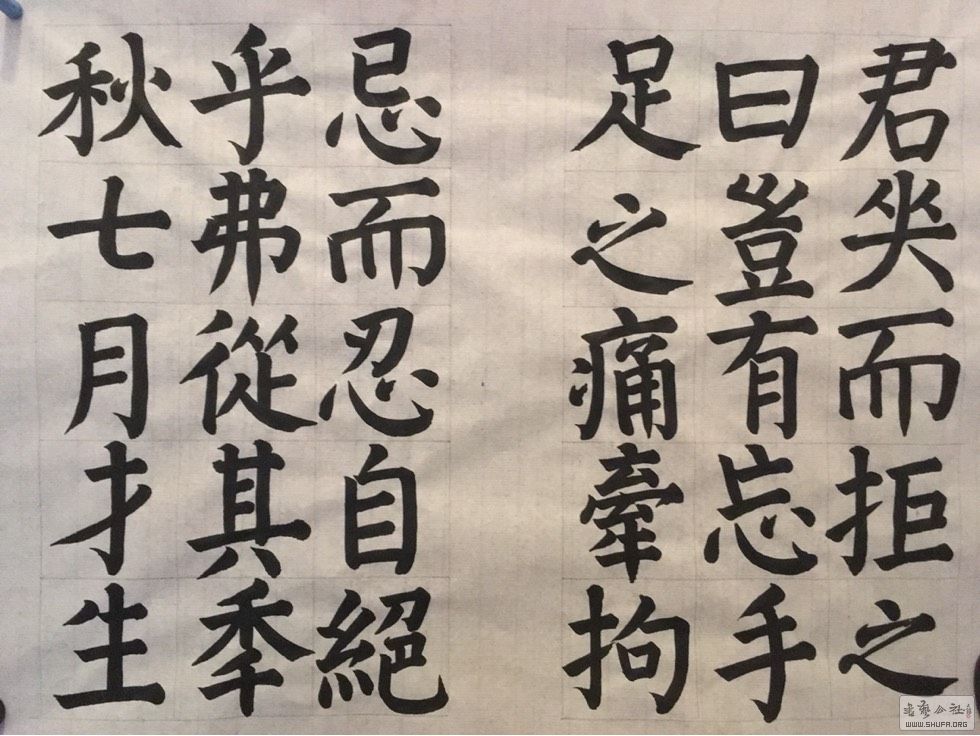 君坐而拒之
曰豈有忘手
足之痛牽拘
忌而忍自絕
乎弗從其季
秋七月才生
WWW.SHUFA.ORG